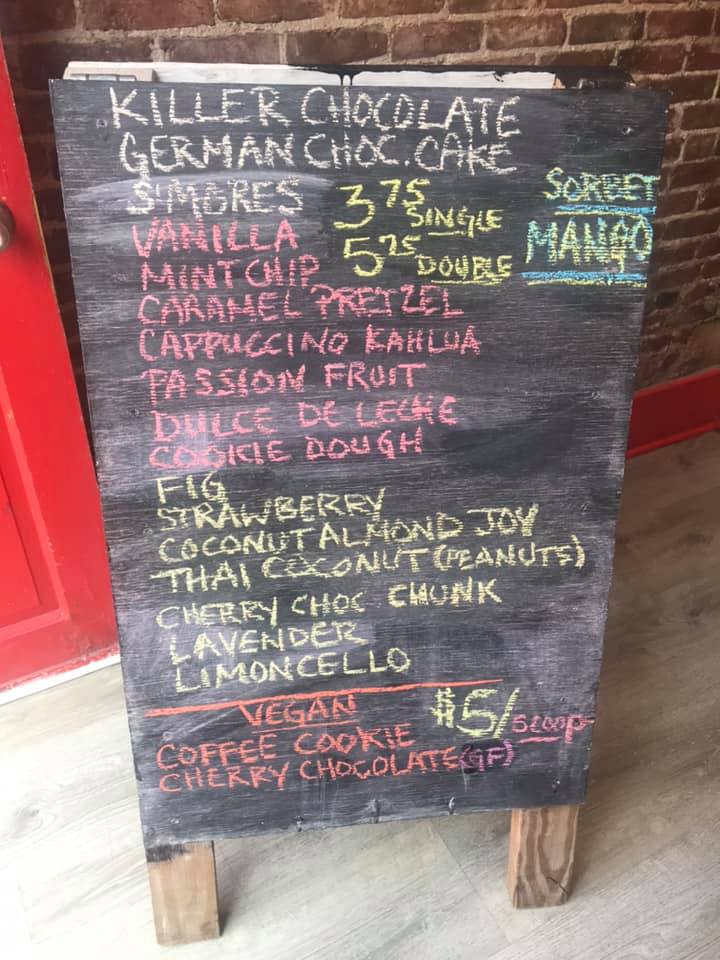 KILLER CHOCOLATE
GERMAN CHOC. CAKE
S'MORES
3 75 SINGLE
5 25 DOUBLE
SORBET
MANGO
VANILLA
MINT CHIP
CARAMEL PRETZEL
CAPPUCCINO KAHLUA
PASSION FRUIT
DULCE DE LECHE
COOKIE DOUGH
FIG
STRAWBERRY
COCONUT ALMOND JOY
THAI COCONUT (PEANUTS)
CHERRY CHOC CHUNK
LAVENDER
LIMONCELLO
VEGAN
$5/SCOOP
COFFEE COOKIE
CHERRY CHOCOLATE (GF)